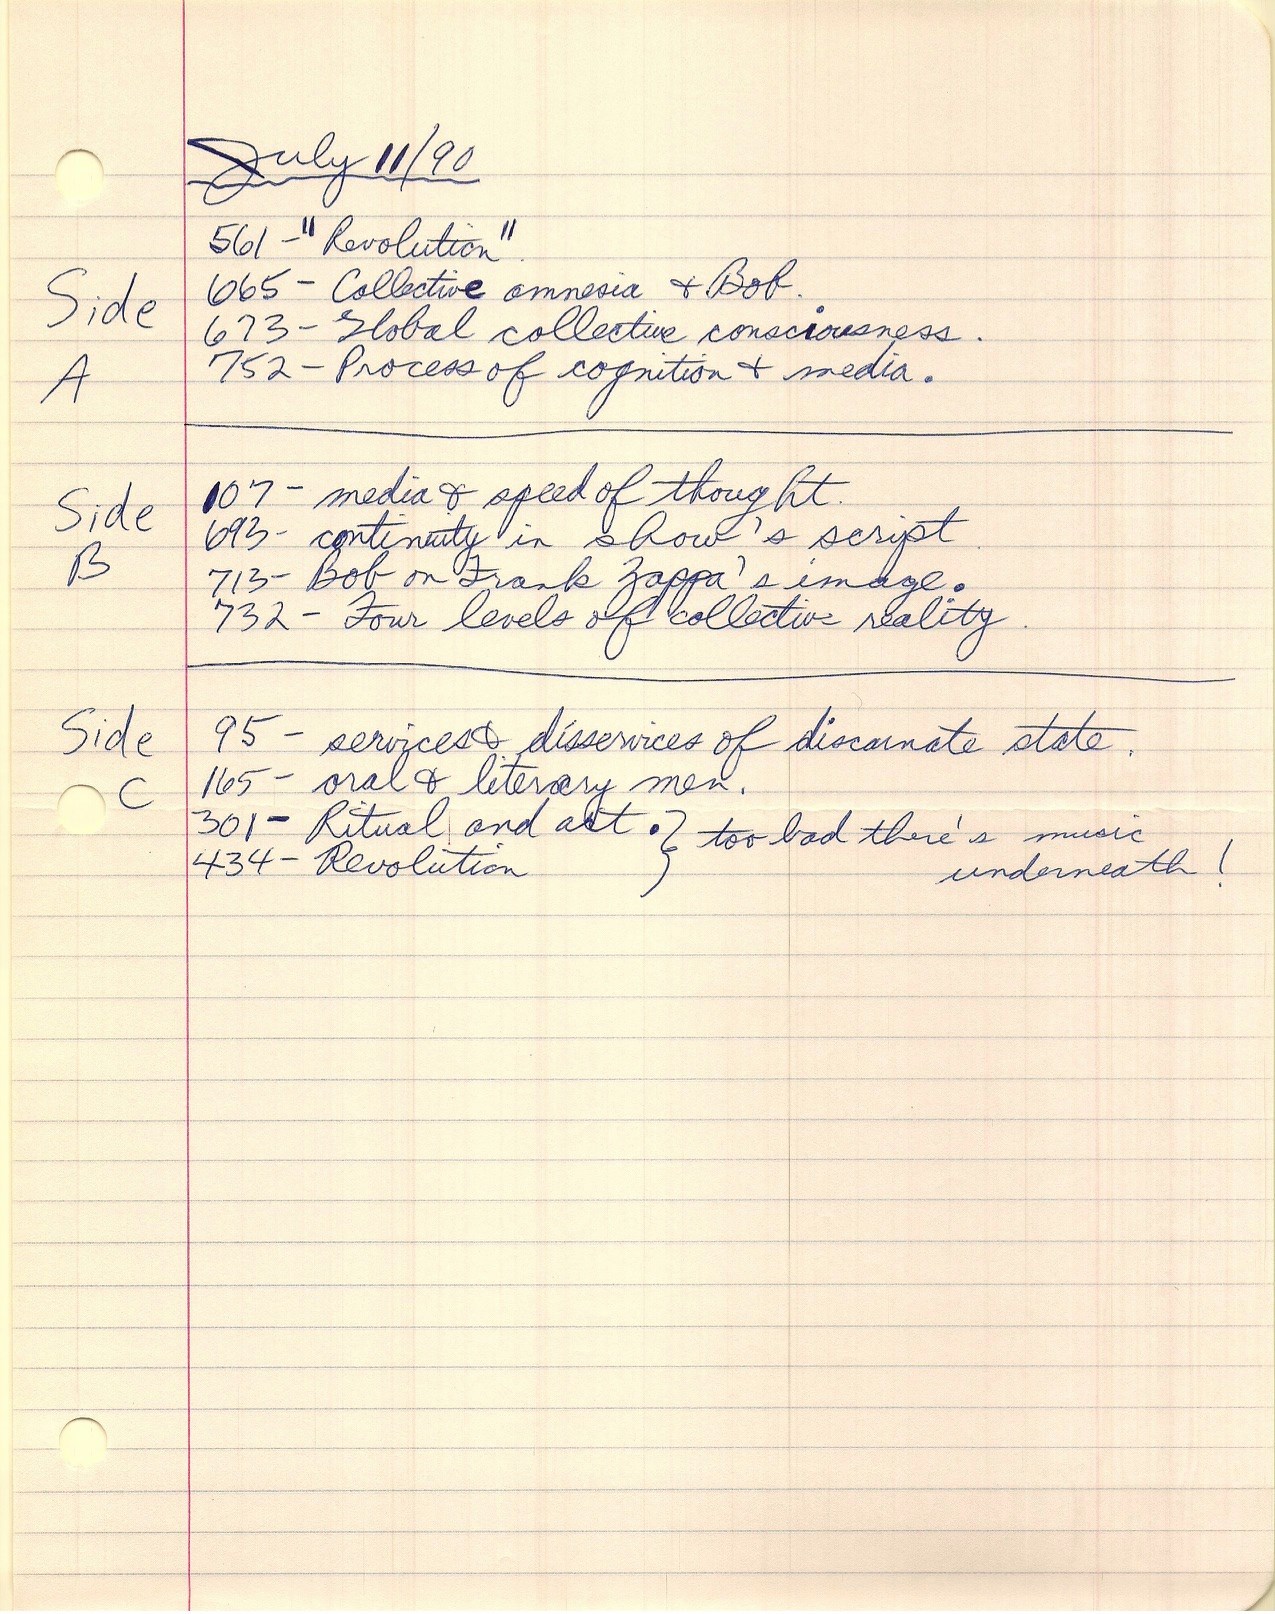 July 11/90
561 - "Revolution".
Side A
665 - Collective amnesia & Bob.
673 - Global collective consciousness.
752 - Process of cognition & media.
Side B
107 - media & speed of thought.
693 - continuity in show's script.
713 - Bob on Frank Zappa's image.
732 - Four levels of collective reality.
Side C
95 - services & disservices of discarnate state.
165 - oral & literary men.
301 - Ritual and art. } too bad there's music
434 - Revolution underneath!